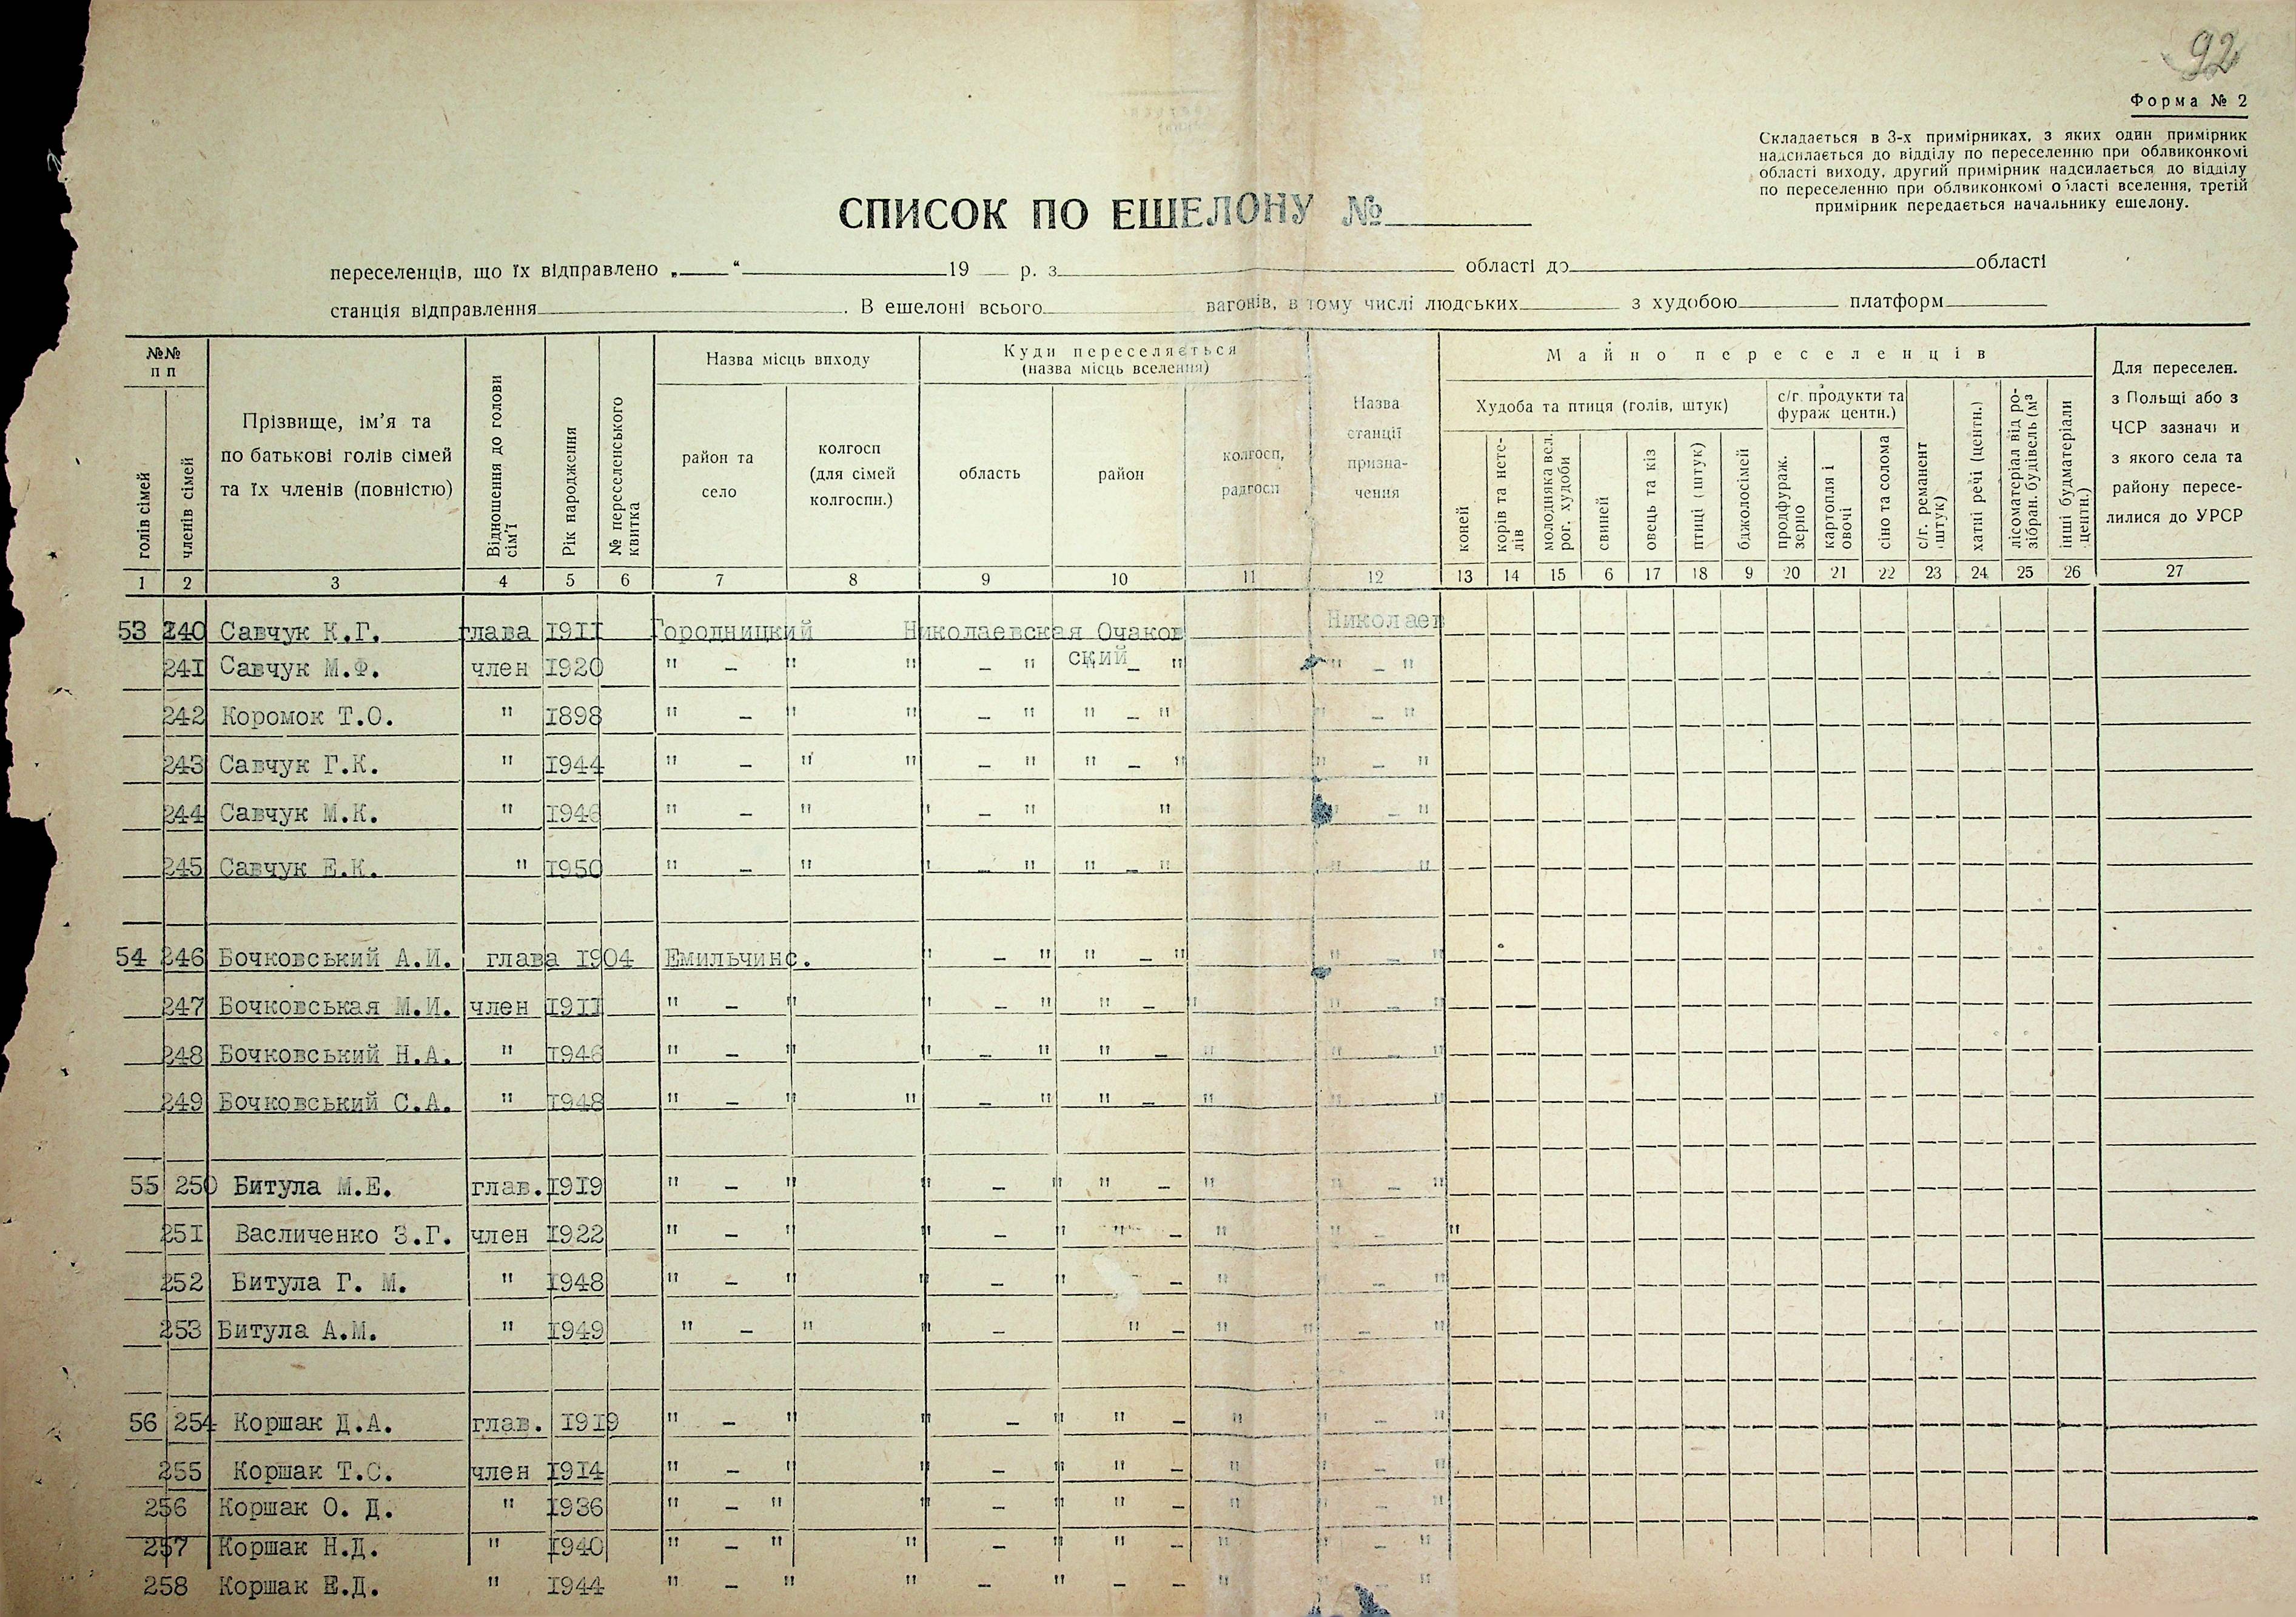 92
Форма № 2
Складається в 3-х примірниках, з яких один примірник
надсилається до відділу по переселенню при облвиконкомі
області виходу, другий примірник надсилається до відділу
по переселенню при облвиконкомі області вселення, третій
примірник передається начальнику ешелону.
СПИСОК ПО ЕШЕЛОНУ №
переселенців, що їх відправлено „ “ 19 р. з області до області
станція відправлення . В ешелоні всього вагонів, в тому числі людських з худобою платформ
№№ пп
голів сімей
членів сімей
Прізвище, ім'я та
по батькові голів сімей
та їх членів (повністю)
Відношення до голови сім'ї
Рік народження
№ переселенського квитка
Назва місць виходу
район та
село
колгосп
(для сімей
колгоспн.)
Куди переселяється
(назва місць вселення)
область
район
колгосп,
радгосп
Назва
станції
призна-
чення
Майно переселенців
Худоба та птиця (голів, штук)
коней
корів та нете-
лів
молодняка вел.
рог. худоби
свиней
овець та кіз
птиці (штук)
бджолосімей
с/г. продукти та
фураж центн.)
продфураж.
зерно
картопля і
овочі
сіно та солома
с/г. реманент
штук)
хатні речі (центн.)
лісоматеріал від ро-
зібран. будівель (м³
інші будматеріали
центн.)
Для переселен.
з Польщі або з
ЧСР зазначи и
з якого села та
району пересе-
лилися до УРСР
1 2 3 4 5 6 7 8 9 10 11 12 13 14 15 6 17 18 9 20 21 22 23 24 25 26 27
53 240 Савчук К.Г. глава 1911 Городницкий Николаевская Очаков Николаев
ский
241 Савчук М.Ф. член 1920 " – " " – " " – " " – "
242 Коромок Т.О. " 1898 " – " " – " " – " " – "
243 Савчук Г.К. " 1944 " – " " – " " – " " – "
244 Савчук М.К. " 1946 " – " " – " " " – "
245 Савчук Е.К. " 1950 " – " " – " " – " " "
54 246 Бочковський А.И. глава 1904 Емильчинс. " – " " – " " – "
247 Бочковськая М.И. член 1911 " – " " – " " – " " – "
248 Бочковський Н.А. " 1946 " – " " – " " – " " – "
249 Бочковський С.А. " 1948 " – " " – " " – " " – "
55 250 Битула М.Е. глав. 1919 " – " " – " " – " " – "
251 Васличенко З.Г. член 1922 " – " " – " " – " " – "
252 Битула Г. М. " 1948 " – " " – " – " " – "
253 Битула А.М. " 1949 " – " " – " – " " – "
56 254 Коршак Д.А. глав. 1919 " – " " – " " – " " – "
255 Коршак Т.С. член 1914 " – " " – " " – " " – "
256 Коршак О. Д. " 1936 " – " " – " " – " " – "
257 Коршак Н.Д. " 1940 " – " " – " " – " " – "
258 Коршак Е.Д. " 1944 " – " " – " – – " " – "